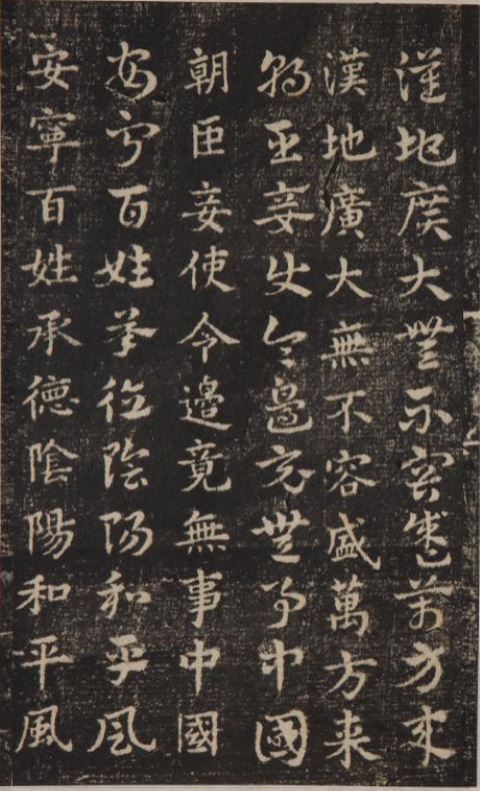 漢地廣大無不容盛萬方來
漢地廣大無不容盛萬方来
朝臣妾使令邊竟無事中國
朝臣妾使令邊竟無事中國
安寧百姓承德陰陽和平風
安寧百姓承德陰陽和平風